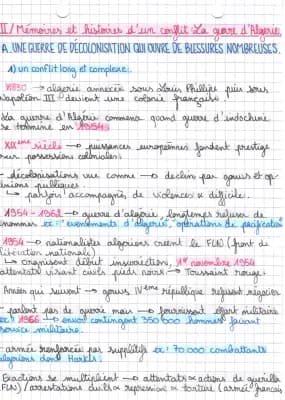 II/ Mémoires et histoires d'un conflit : La guerre d'Algérie.
A. UNE GUERRE DE DÉCOLONISATION QUI OUVRE DE BLESSURES NOMBREUSES.
1) un conflit long et complexe.
1830 → algérie annexée sous Louis Philippe puis sous
Napoléon III devient une colonie française.
La guerre d'Algérie commença quand guerre d'indochine
se termine en 1954
XIXème siècle → puissances européennes fondent prestige
sur possessions coloniales.
- décolonisations vue comme → déclin par gouvs et op-
inions publiques
↳ parfois accompagnés de violences & difficile.
1954 - 1962 → guerre d'algérie, longtemps refuser de
nommer ex: "évènements d'algérie", opérations de pacification
1954 → nationalistes algériens créent le FLN (front de
libération nationale)
↳ organisent début insurrection, 1er novembre 1954
attentats visant civils pieds noirs → Toussaint rouge.
Années qui suivent → gouvs IVème république refusent négocier
- parlent pas de guerre mais → fournissent effort militaire
ex: 1956 → envoi contingent 350 000 hommes faisant
service militaire.
- armée renforcée par supplétifs ex: 70 000 combattants
algériens dont Harkis.
Exactions se multiplient → attentats & actions de guérilla
(FLN) / arrestations & répression & torture (armée français